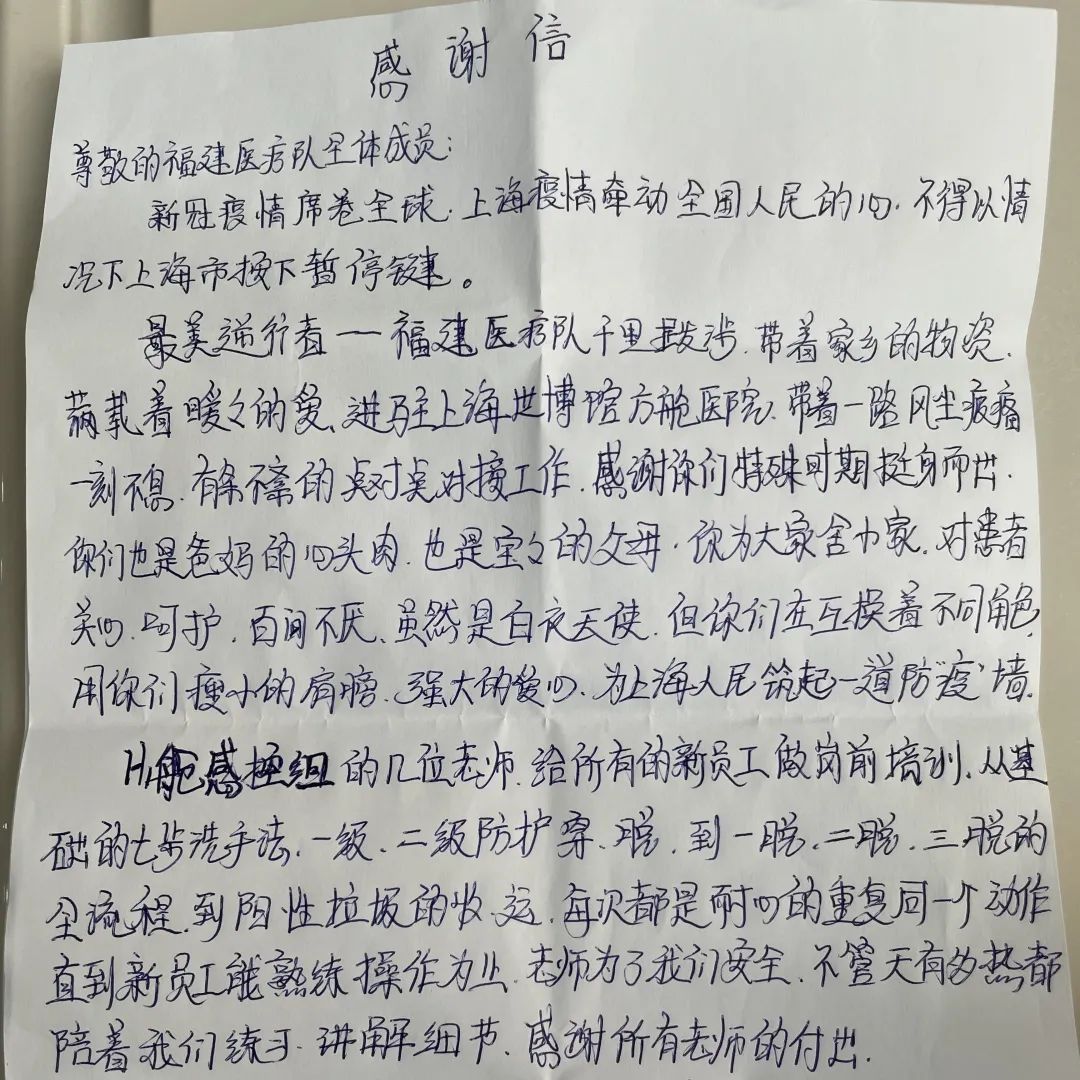 感谢信
尊敬的福建医疗队全体成员:
新冠疫情席卷全球.上海疫情牵动全国人民的心.不得以情
况下上海市按下暂停键。
最美逆行者一一福建医疗队千里跋涉.带着家乡的物资.
满载着暖々的爱、进驻上海世博馆方舱医院.带着一路风尘疲痛
一刻不息.有条不紊的点对点对接工作.感谢你们特殊时期挺身而出.
你们也是爸妈的心头肉.也是宝々的父母.你为大家舍小家.对患者
关心.呵护.百问不厌、虽然是白衣天使.但你们在互换着不同角色,
用你们瘦小的肩膀.强大的爱心.为上海人民筑起一道防"疫"墙.
H1舱感控组的几位老师.给所有的新员工做岗前培训.从基
础的七步洗手法.一级.二级防护穿、脱.到一脱.二脱.三脱的
全流程.到阳性垃圾的收.运.每次都是耐心的重复同一个动作
直到新员工能熟练操作为止.老师为了我们安全.不管天有多热都
陪着我们练习.讲解细节.感谢所有老师的付出.